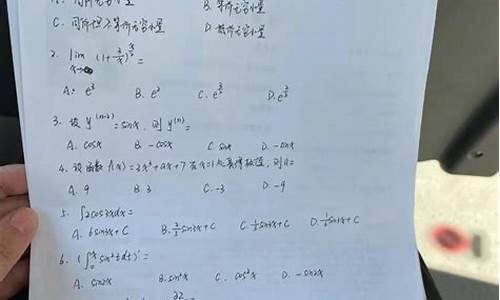 A. 同阶无穷小量 B. 等阶无穷小量
C. 同阶但不等阶无穷小量 D.
2. lim x→∞ (1+2/x)^
A. e³ B. e² C. D.
3. 设 y⁽ⁿ⁻²⁾=sinx, 则 y⁽ⁿ⁾=
A. cosx B. -cosx C. sinx D. -sinx
4. 设函数 f(x)=2x³+ax+7 在x=1处 极值, 则a=
A. 9 B. 3 C. -3 D. -9
5. ∫2cos3xdx=
A. 6sin3x+C B. 2/3 sin3x+C C. sin3x+C D. sin3x+C
6. (∫₀ˣ sin²tdt)'=
A. sin2x B. sin²x C. cos²x D. -sin2x